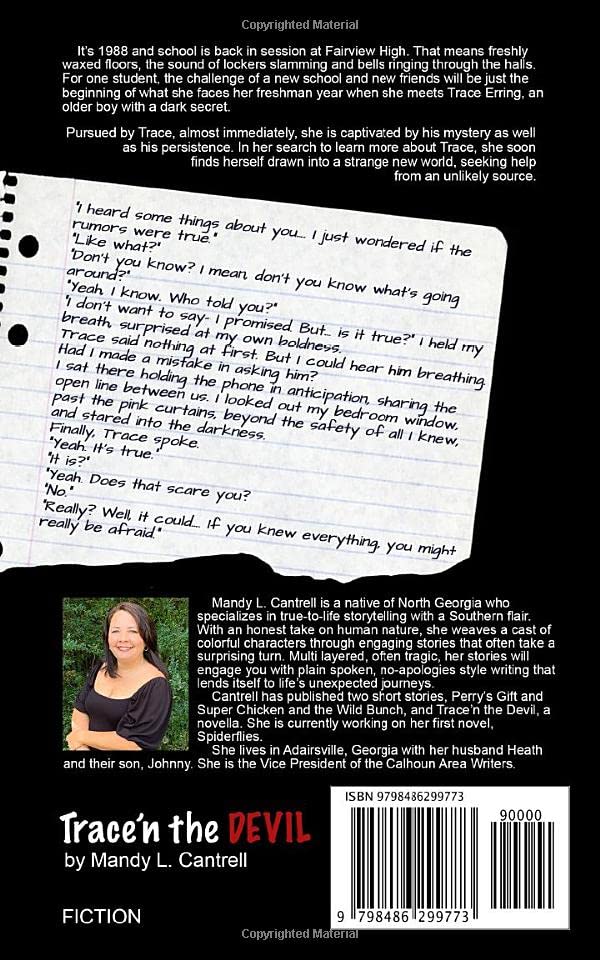 Copyrighted Material
It's 1988 and school is back in session at Fairview High. That means freshly
waxed floors, the sound of lockers slamming and bells ringing through the halls.
For one student, the challenge of a new school and new friends will be just the
beginning of what she faces her freshman year when she meets Trace Erring, an
older boy with a dark secret.
Pursued by Trace, almost immediately, she is captivated by his mystery as well
as his persistence. In her search to learn more about Trace, she soon
finds herself drawn into a strange new world, seeking help
from an unlikely source.
"I heard some things about you... I just wondered if the
rumors were true."
"Like what?"
"Don't you know? I mean, don't you know what's going
around?"
"Yeah. I know. Who told you?"
"I don't want to say- I promised. But... is it true?" I held my
breath, surprised at my own boldness.
Trace said nothing at first. But I could hear him breathing.
Had I made a mistake in asking him?
I sat there holding the phone in anticipation, sharing the
open line between us. I looked out my bedroom window,
past the pink curtains, beyond the safety of all I knew,
and stared into the darkness.
Finally, Trace spoke.
"Yeah. It's true."
"It is?"
"Yeah. Does that scare you?
"No."
"Really? Well, it could... If you knew everything, you might
really be afraid."
Mandy L. Cantrell is a native of North Georgia who
specializes in true-to-life storytelling with a Southern flair.
With an honest take on human nature, she weaves a cast of
colorful characters through engaging stories that often take a
surprising turn. Multi layered, often tragic, her stories will
engage you with plain spoken, no-apologies style writing that
lends itself to life's unexpected journeys.
Cantrell has published two short stories, Perry's Gift and
Super Chicken and the Wild Bunch, and Trace'n the Devil, a
novella. She is currently working on her first novel,
Spiderflies.
She lives in Adairsville, Georgia with her husband Heath
and their son, Johnny. She is the Vice President of the Calhoun Area Writers.
Trace'n the DEVIL
by Mandy L. Cantrell
FICTION
ISBN 9798486299773
90000
9 798486 299773
Copyrighted Material